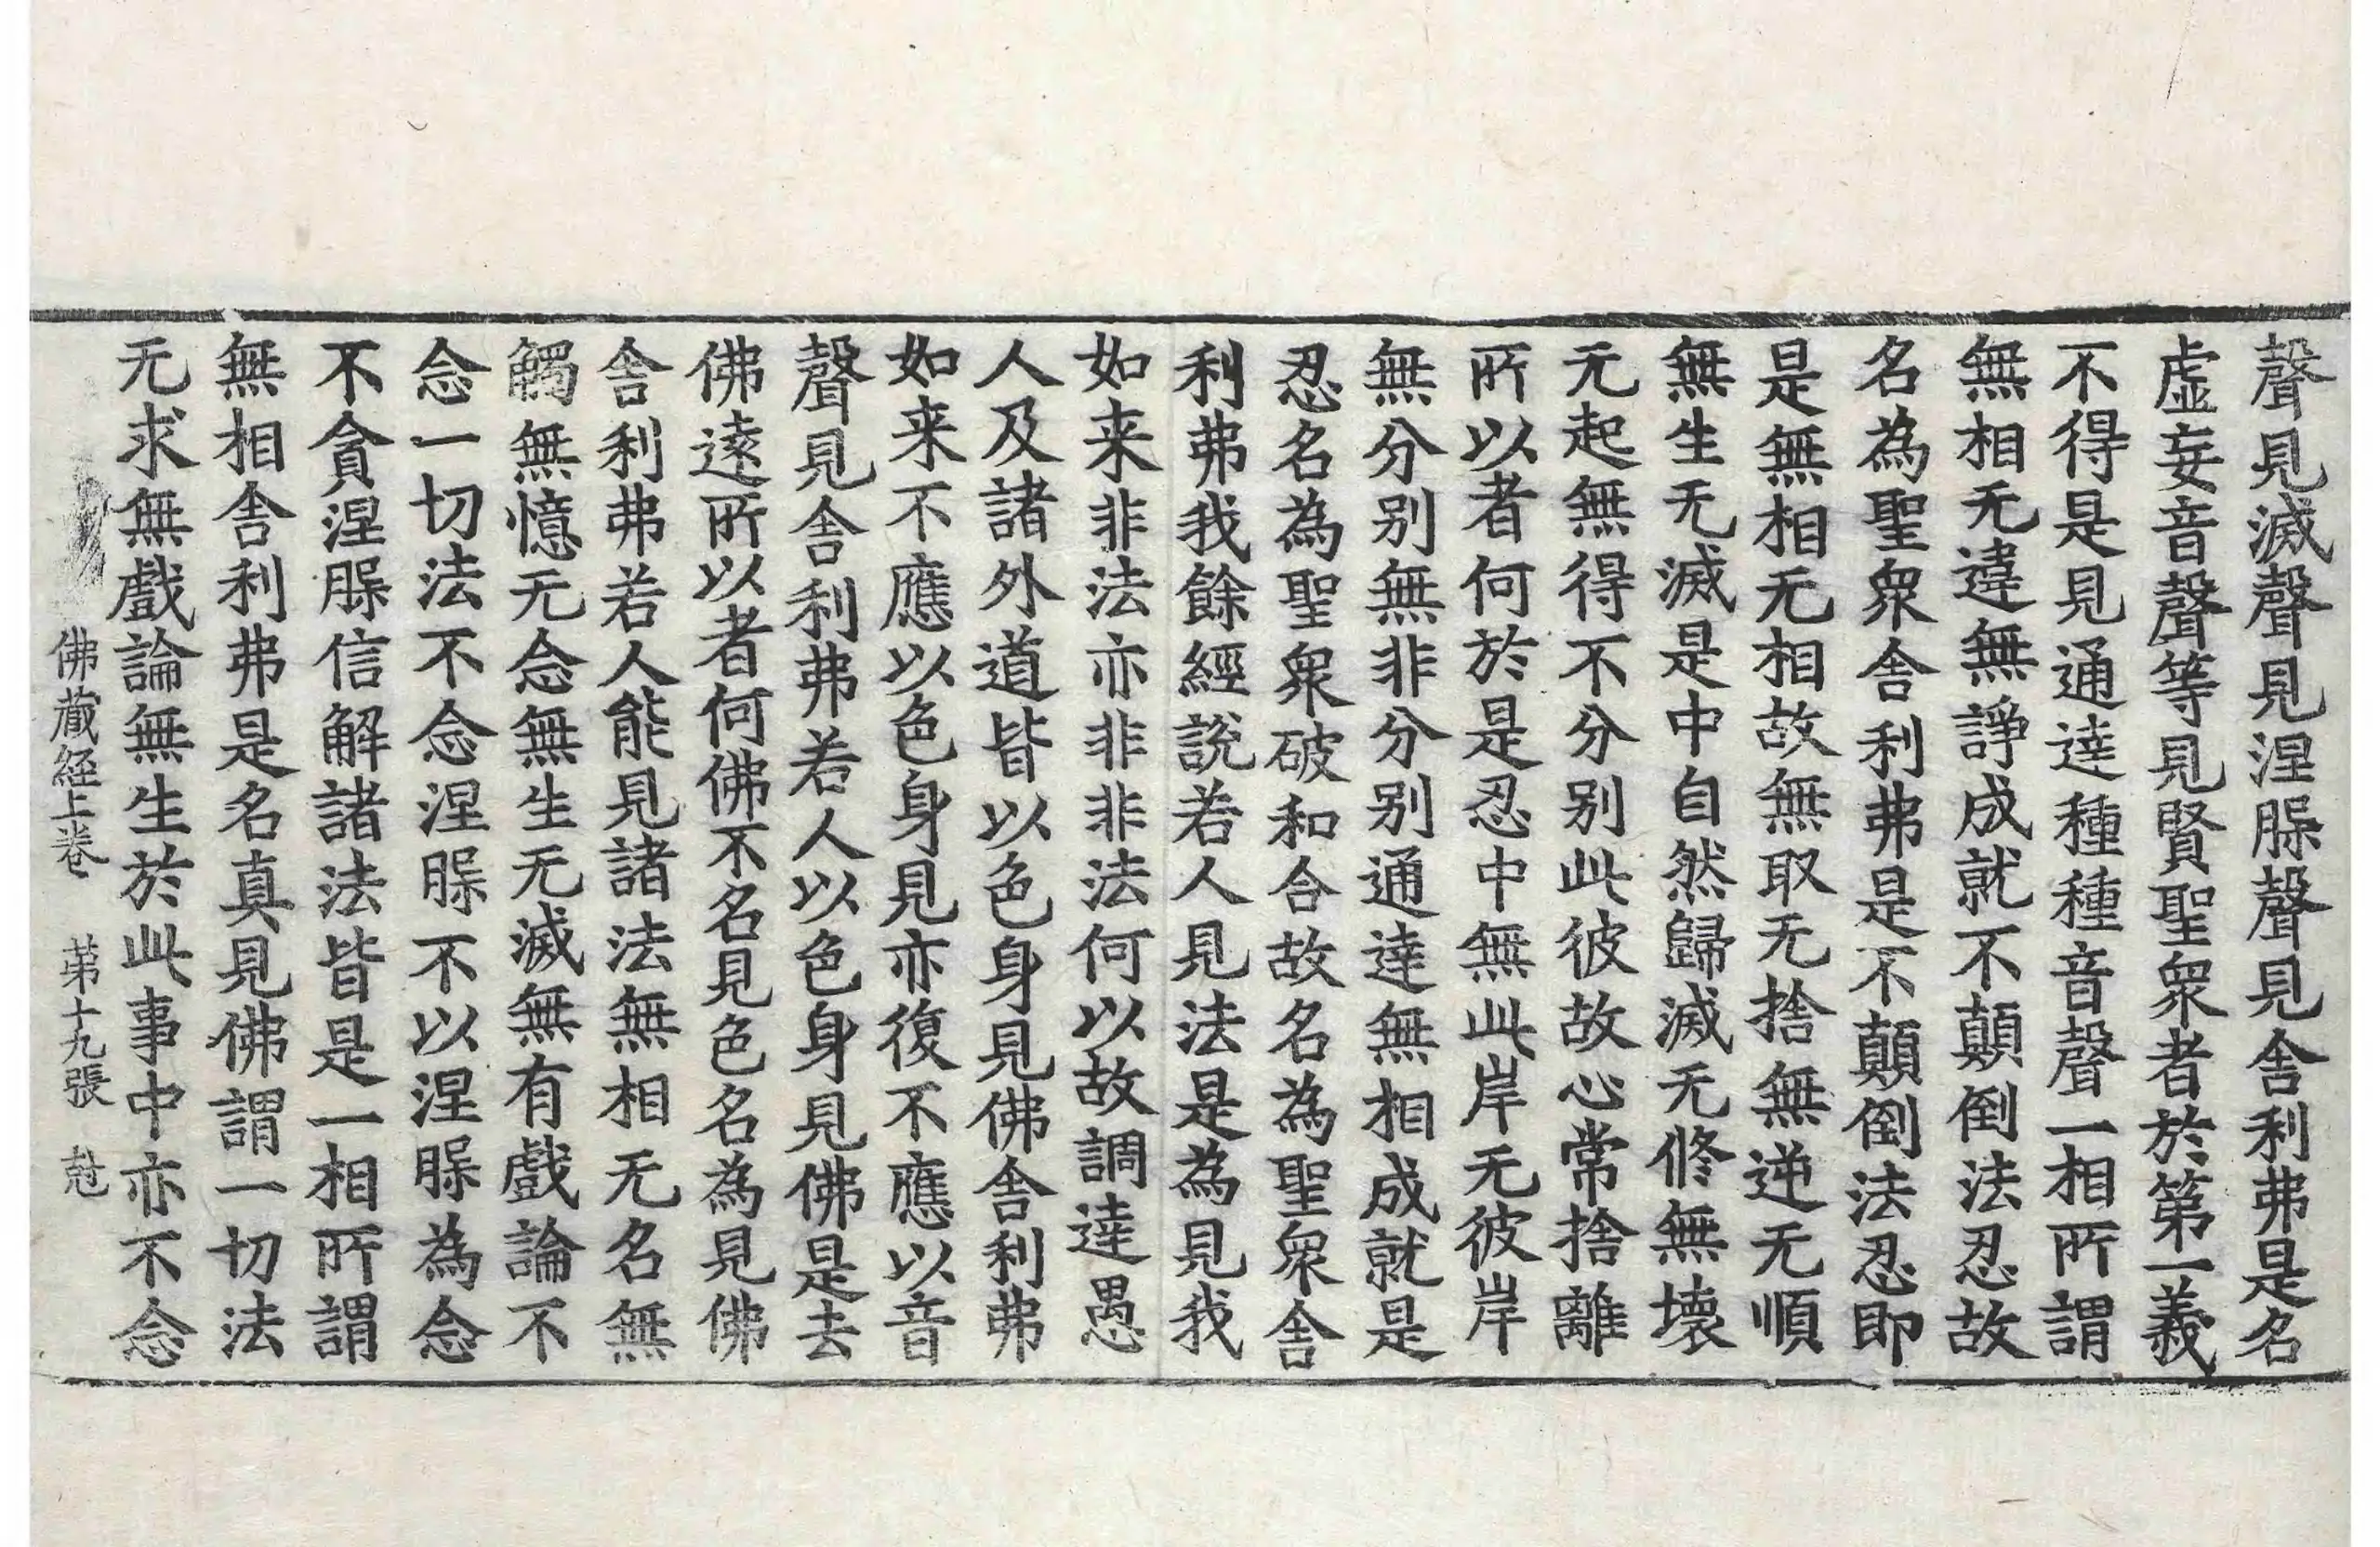 聲見滅聲見涅脲聲見舎利弗是名
虛妄音聲等見賢聖衆者於第一義
不得是見通達種種音聲一相所謂
無相无違無諍成就不顛倒法忍故
名為聖衆舎利弗是不顛倒法忍即
是無相无相故無取无捨無逆无順
無生无滅是中自然歸滅无修無壞
无起無得不分別此彼故心常捨離
所以者何於是忍中無此岸无彼岸
無分別無非分別通達無相成就是
忍名為聖衆破和合故名為聖衆舎
利弗我餘經說若人見法是為見我
如来非法亦非非法何以故調達愚
人及諸外道皆以色身見佛舎利弗
如来不應以色身見亦復不應以音
聲見舎利弗若人以色身見佛是去
佛遠所以者何佛不名見色名為見佛
舎利弗若人能見諸法無相无名無
觸無憶无念無生无滅無有戲論不
念一切法不念涅脲不以涅脲為念
不貪涅脲信解諸法皆是一相所謂
無相舎利弗是名真見佛謂一切法
无求無戲論無生於此事中亦不念
佛蔵経上卷 苐十九張 尅